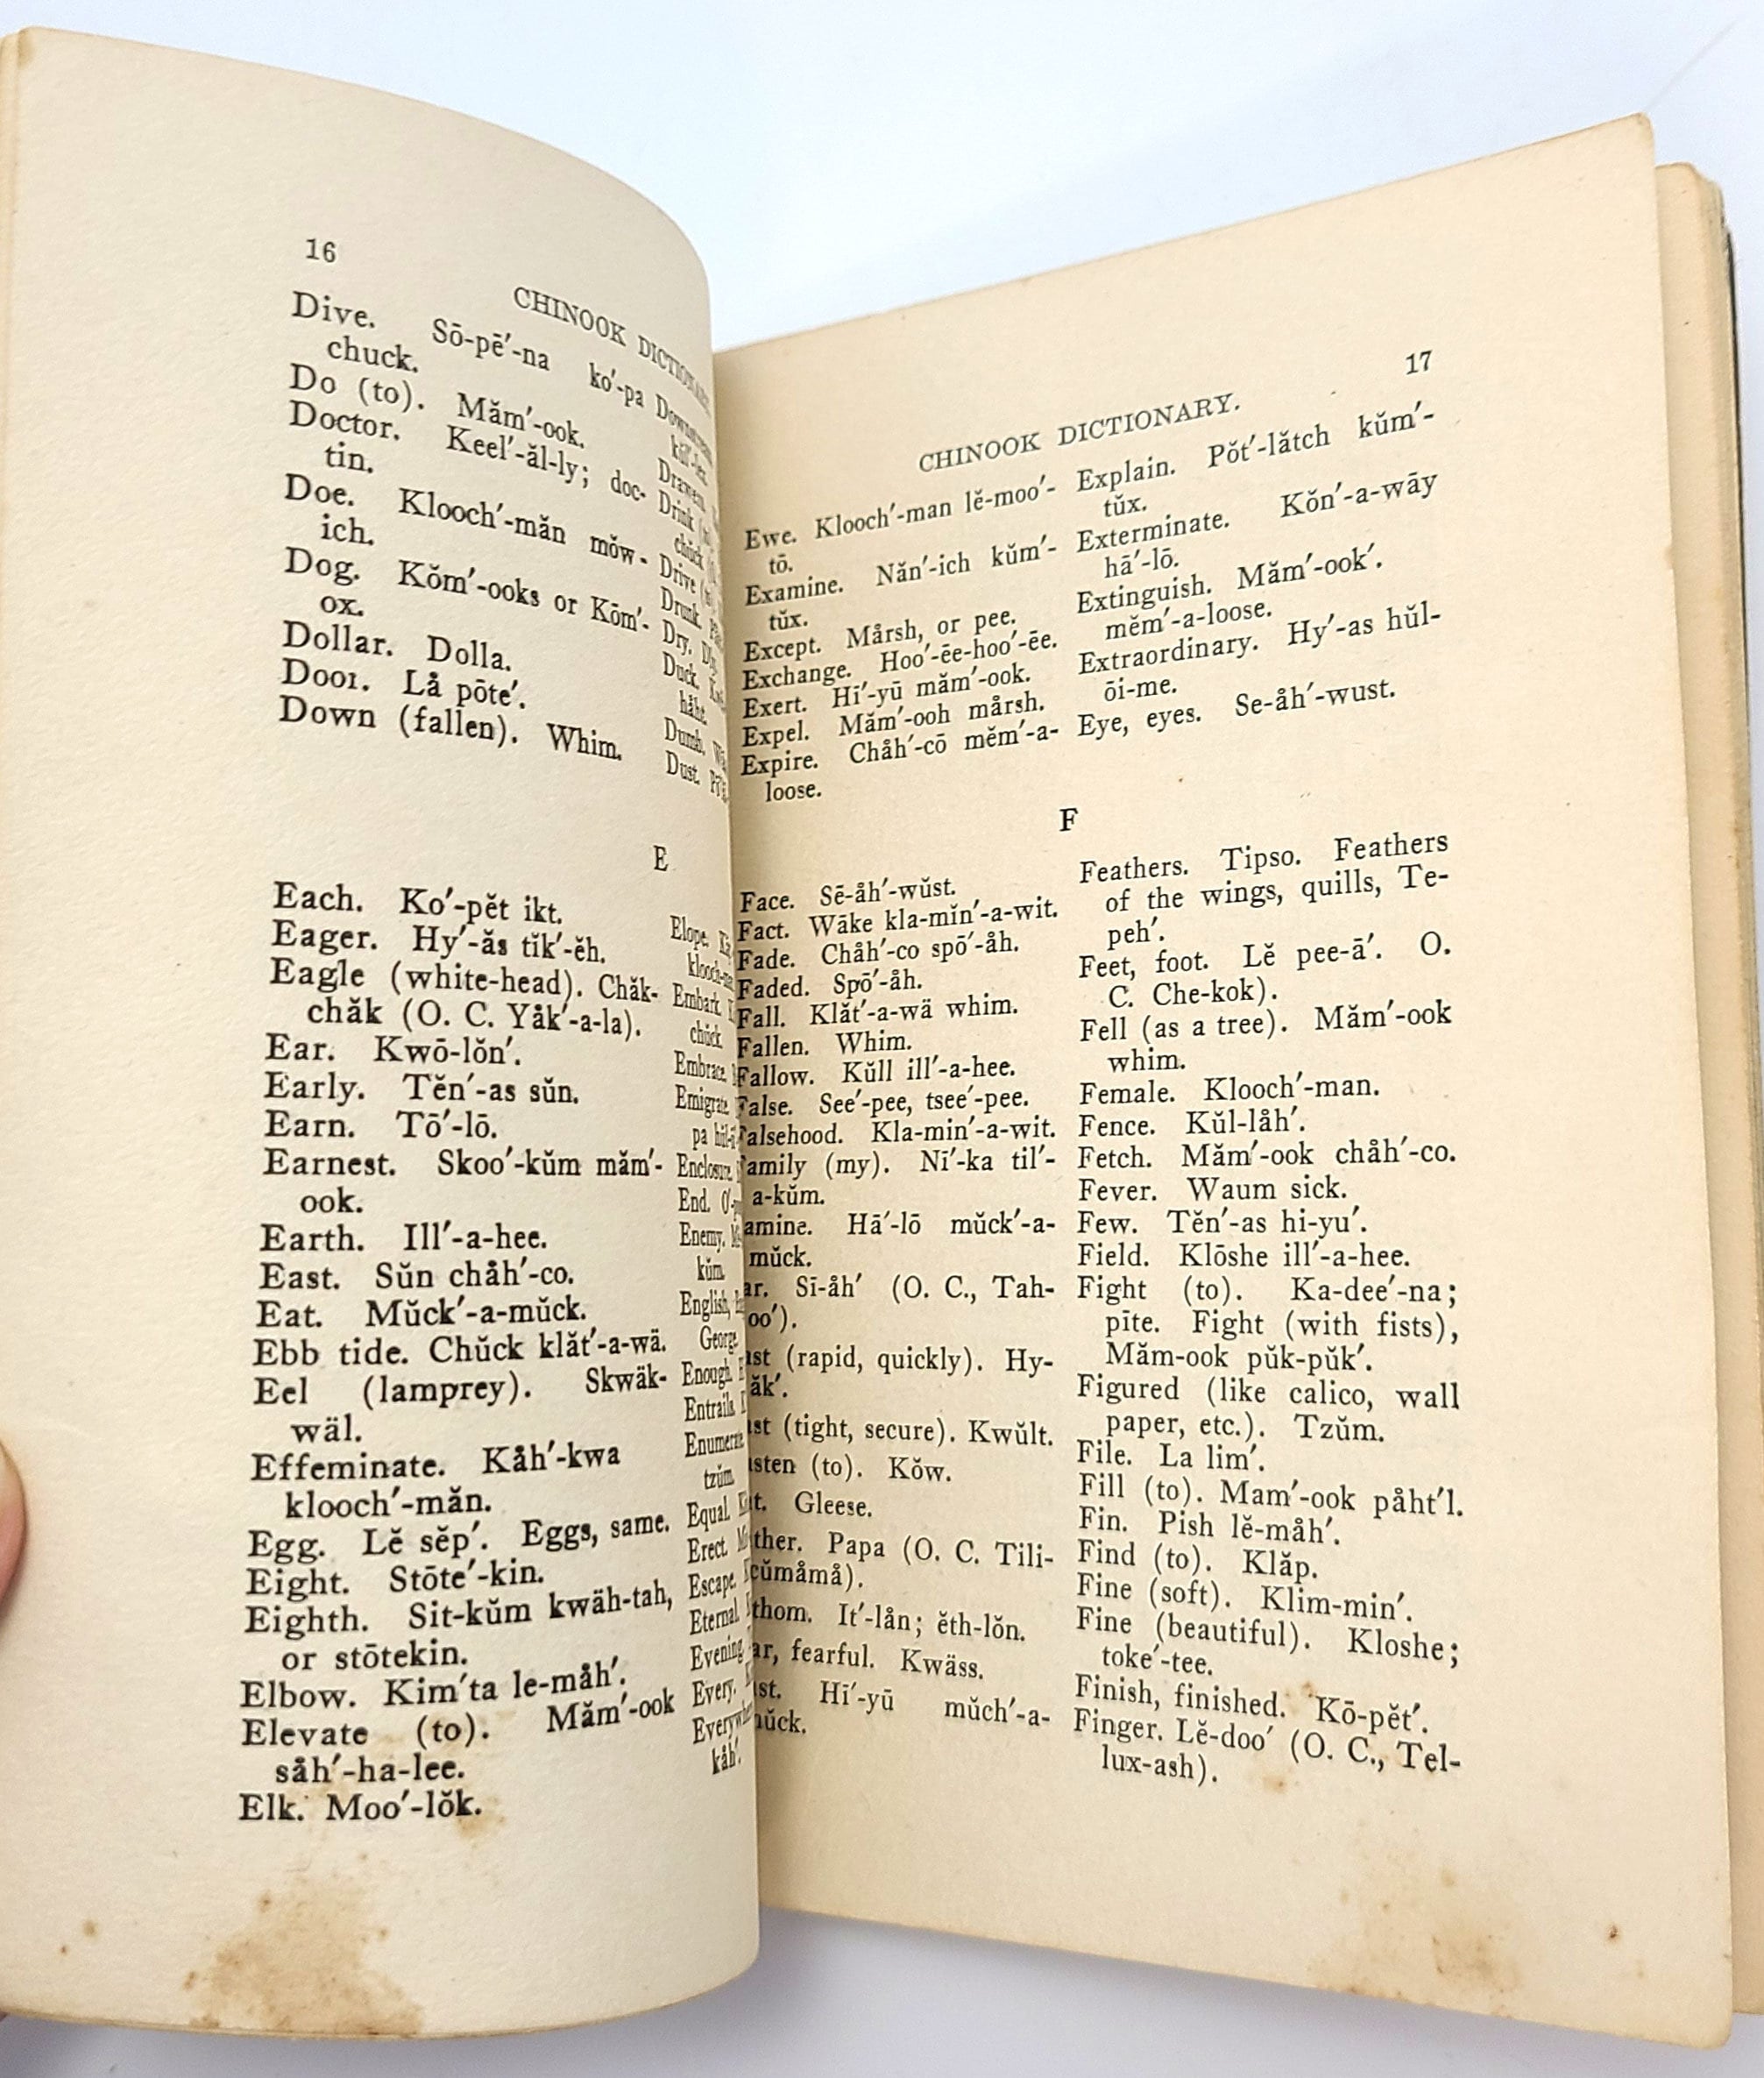 16
CHINOOK DICTIONARY.
Dive. Sō-pē′-na ko′-pa
chuck.
Do (to). Măm′-ook.
Doctor. Keel′-ăl-ly; doc-
tin.
Doe. Klooch′-măn mŏw-
ich.
Dog. Kŏm′-ooks or Kōm′-
ox.
Dollar. Dolla.
Door. Lå pōte′.
Down (fallen). Whim.
Drink
chŭck
Drive
Drunk.
Dry.
Duck.
håht.
Dumb.
Dust.
E
Each. Ko′-pĕt ikt.
Eager. Hy′-ăs tĭk′-ĕh.
Eagle (white-head). Chăk-
chăk (O. C. Yåk′-a-la).
Ear. Kwō-lŏn′.
Early. Tĕn′-as sŭn.
Earn. Tō′-lō.
Earnest. Skoo′-kŭm măm′-
ook.
Earth. Ill′-a-hee.
East. Sŭn chåh′-co.
Eat. Mŭck′-a-mŭck.
Ebb tide. Chŭck klăt′-a-wä.
Eel (lamprey). Skwäk-
wäl.
Effeminate. Kåh′-kwa
klooch′-măn.
Egg. Lĕ sĕp′. Eggs, same.
Eight. Stōte′-kin.
Eighth. Sit-kŭm kwäh-tah,
or stōtekin.
Elbow. Kim′ta le-måh′.
Elevate (to). Măm′-ook
såh′-ha-lee.
Elk. Moo′-lŏk.
Elope.
Embark.
chŭck.
Embrace.
Emigrate.
Enclosure.
End.
Enemy.
kŭm.
English,
George.
Enough.
Entrails.
Enumerate.
tzŭm.
Equal.
Erect.
Escape.
Eternal.
Evening.
Every.
kåh′.
17
CHINOOK DICTIONARY.
Ewe. Klooch′-man lĕ-moo′-
tō.
Examine. Năn′-ich kŭm′-
tŭx.
Except. Mårsh, or pee.
Exchange. Hoo′-ēe-hoo′-ēe.
Exert. Hī′-yū măm′-ook.
Expel. Măm′-ooh mårsh.
Expire. Chåh′-cō mĕm′-a-
loose.
Explain. Pŏt′-lătch kŭm′-
tŭx.
Exterminate. Kŏn′-a-wāy
hā′-lō.
Extinguish. Măm′-ook′.
mĕm′-a-loose.
Extraordinary. Hy′-as hŭl-
ōi-me.
Eye, eyes. Se-åh′-wust.
F
Face. Sē-åh′-wŭst.
Fact. Wāke kla-mĭn′-a-wit.
Fade. Chåh′-co spō′-åh.
Faded. Spō′-åh.
Fall. Klăt′-a-wä whim.
Fallen. Whim.
Fallow. Kŭll ill′-a-hee.
False. See′-pee, tsee′-pee.
alsehood. Kla-min′-a-wit.
amily (my). Nī′-ka til′-
a-kŭm.
amine. Hā′-lō mŭck′-a-
mŭck.
ar. Sī-åh′ (O. C., Tah-
oo′).
ast (rapid, quickly). Hy-
ăk′.
st (tight, secure). Kwŭlt.
sten (to). Kŏw.
t. Gleese.
ther. Papa (O. C. Tili-
cŭmåmå).
thom. It′-lån; ĕth-lŏn.
ar, fearful. Kwäss.
st. Hī′-yū mŭch′-a-
mŭck.
Feathers. Tipso. Feathers
of the wings, quills, Te-
peh′.
Feet, foot. Lĕ pee-ā′. O.
C. Che-kok).
Fell (as a tree). Măm′-ook
whim.
Female. Klooch′-man.
Fence. Kŭl-låh′.
Fetch. Măm′-ook chåh′-co.
Fever. Waum sick.
Few. Tĕn′-as hi-yu′.
Field. Klōshe ill′-a-hee.
Fight (to). Ka-dee′-na;
pīte. Fight (with fists),
Măm-ook pŭk-pŭk′.
Figured (like calico, wall
paper, etc.). Tzŭm.
File. La lim′.
Fill (to). Mam′-ook påht′l.
Fin. Pish lĕ-måh′.
Find (to). Klăp.
Fine (soft). Klim-min′.
Fine (beautiful). Kloshe;
toke′-tee.
Finish, finished. Kō-pĕt′.
Finger. Lĕ-doo′ (O. C., Tel-
lux-ash).